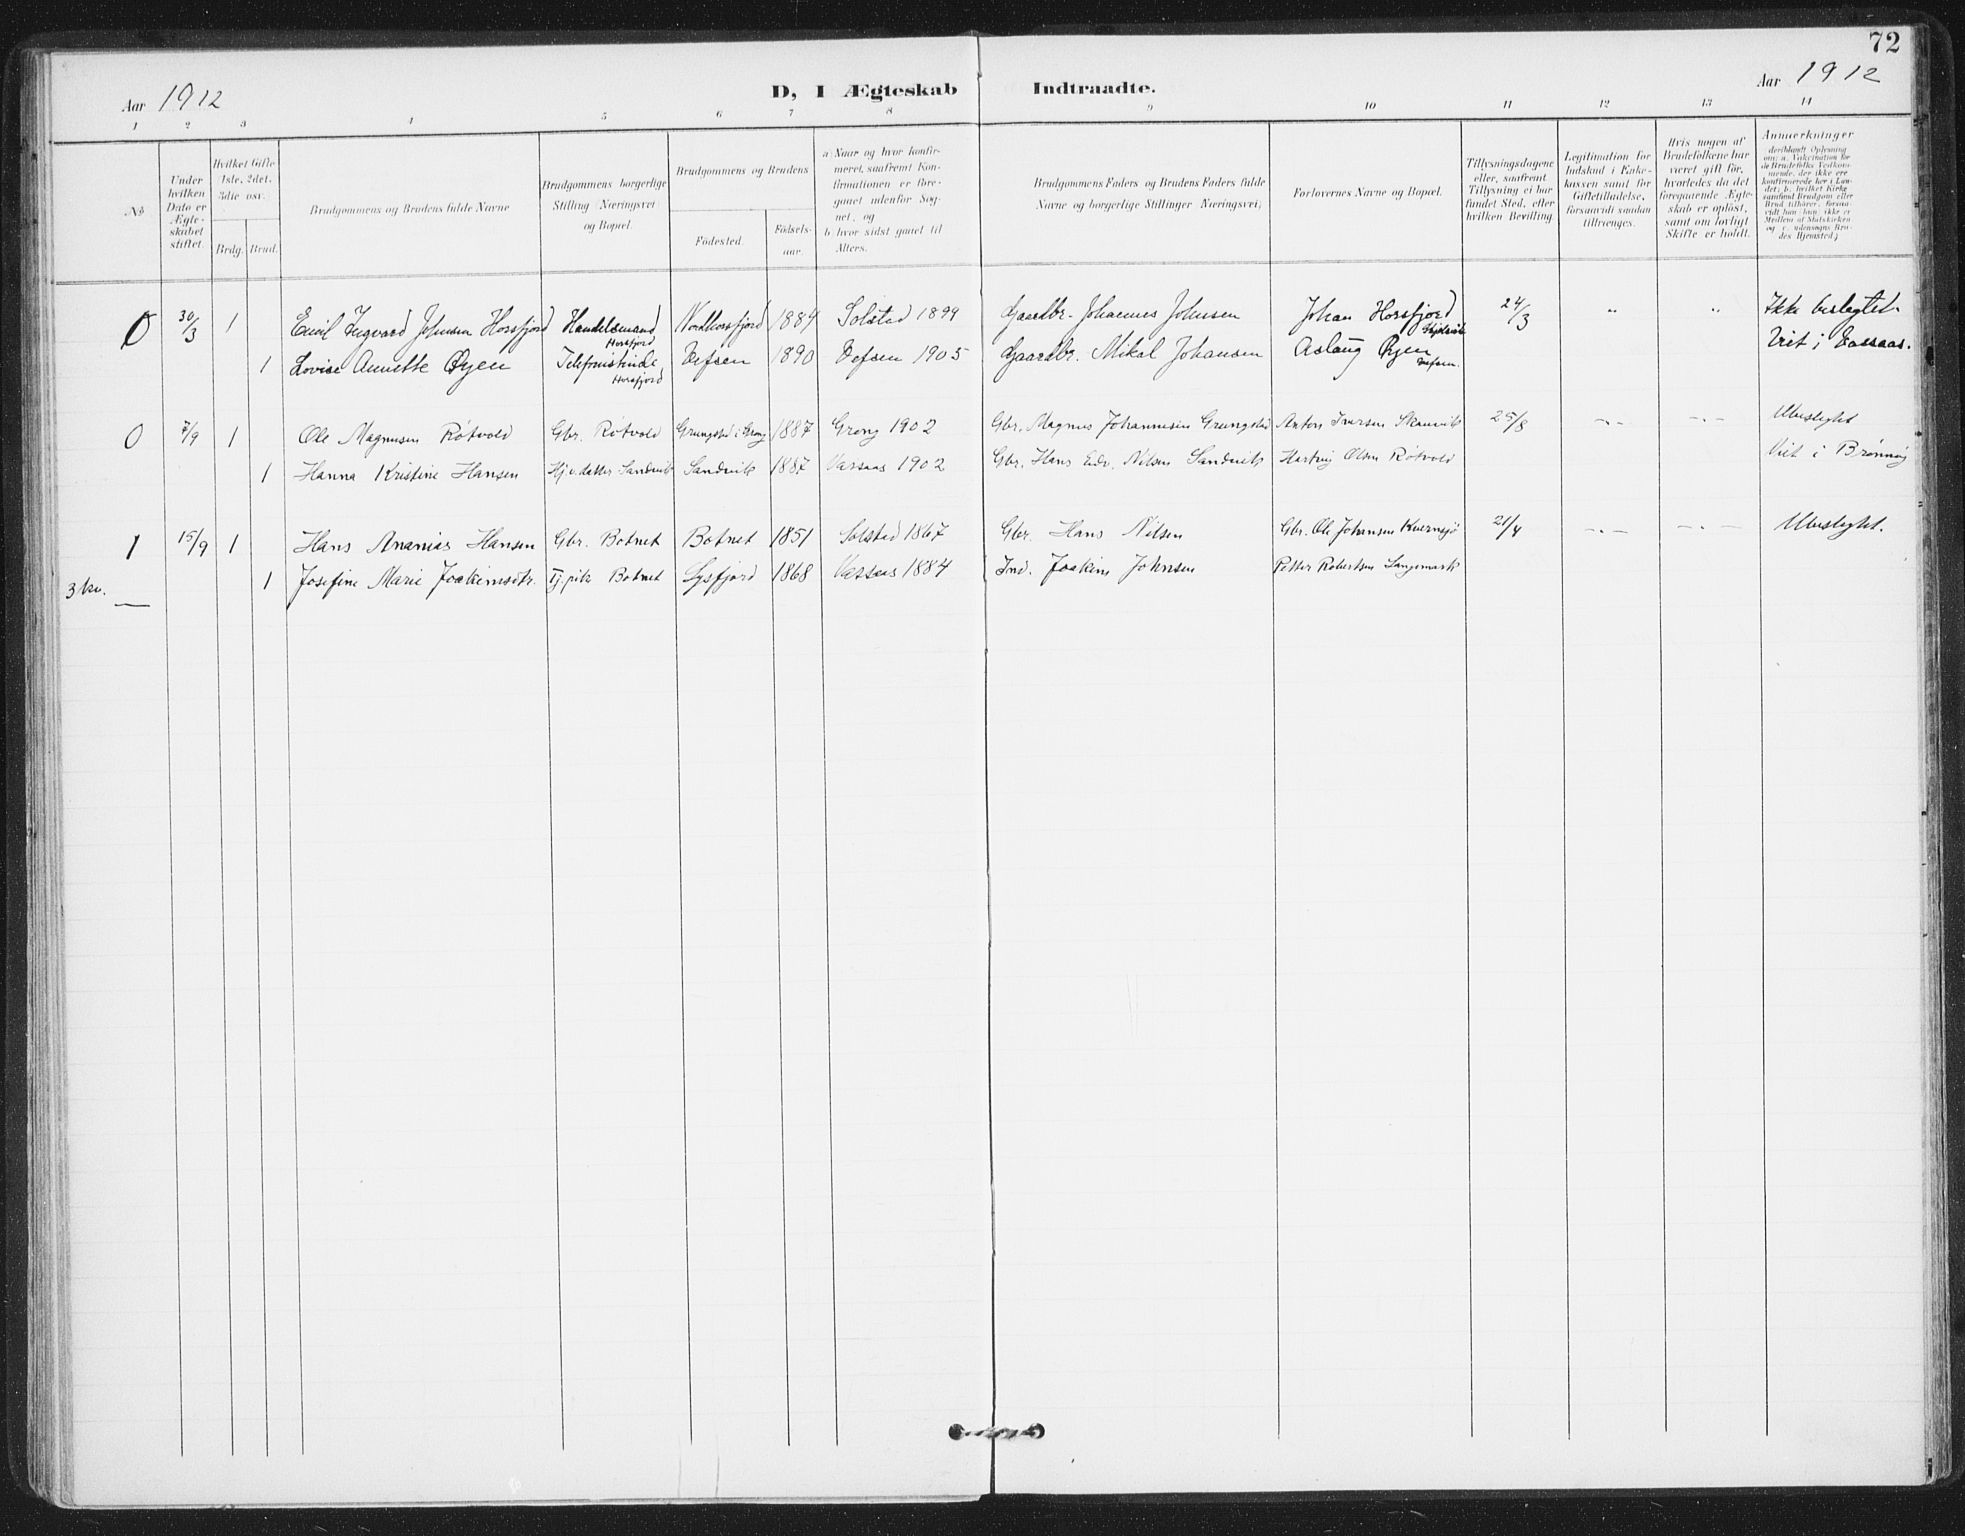 72
Aar 1912 D, I Ægteskab Indtraadte. Aar 1912
1 2 3 4 5 6 7 8 9 10 11 12 13 14
No
Under hvilken Dato er Ægteskabet stiftet.
Hvilket Gifte 1ste, 2det, 3die osv.
Brdg. Brud.
Brudgommens og Brudens fulde Navne
Brudgommens borgerlige Stilling (Næringsvei og Bopæl.
Brudgommens og Brudens
Födested. Födselsaar.
a) Naar og hvor konfirmeret, saafremt Konfirmationen er foregaaet udenfor Sognet, og
b. hvor sidst gaaet til Alters.
Brudgommens Faders og Brudens Faders fulde Navne og borgerlige Stillinger Næringsvei)
Forlovernes Navne og Bopæl.
Tillysningsdagene eller, saafremt Tillysning ei har fundet Sted, efter hvilken Bevilling.
Legitimation for Indskud i Enkekassen samt for Giftetilladelse, forsaavidt saadan tiltrænges.
Hvis nogen af Brudefolkene har været gift før, hvorledes da det foregaaende Ægteskab er oplöst, samt om lovligt Skifte er holdt.
Anmærkninger
0 30/3 1 Emil Ingvard Johnsen Horsfjord Handelsmand Horsfjord Nordhorsfjord 1884 Solstad 1899 Gaardbr. Johannes Johnsen Johan Horsfjord 24/3 " " Ikke beslegtet.
1 Lovise Annette Øyen Telefonistinde Horsfjord Vefsen 1890 Vefsen 1905 Gaardbr. Mikal Johansen Aslaug Øyen Vefsen. Viet i Vassaas.
0 7/9 1 Ole Magnusen Røtvold Gbr. Røtvold Grungstd i Grong 1887 Grong 1902 Gbr. Magnus Johannesen Grungstad Anton Iversen Skanvik 25/8 -"- -"- Ubeslegtt
1 Hanna Kristine Hansen Hj.v. datter Sandvik Sandvik 1887 Vassaas 1902 Gbr. Hans Edv. Nilsen Sandvik Hartvig Olsen Røtvold Viet i Brønnøy
1 15/9 1 Hans Ananias Hansen Gbr. Botnet Botnet 1851 Solstad 1867 Gbr. Hans Nilsen Gbr. Ole Johansen Kvernsjø 21/4 -"- -"- Ubeslegtt.
1 Josefine Marie Joakimsdtr. Tj.pike Botnet Lysfjord 1868 Vassaas 1884 Ind. Joakim Johnsen Petter Robertsen Langemark
3 kv.